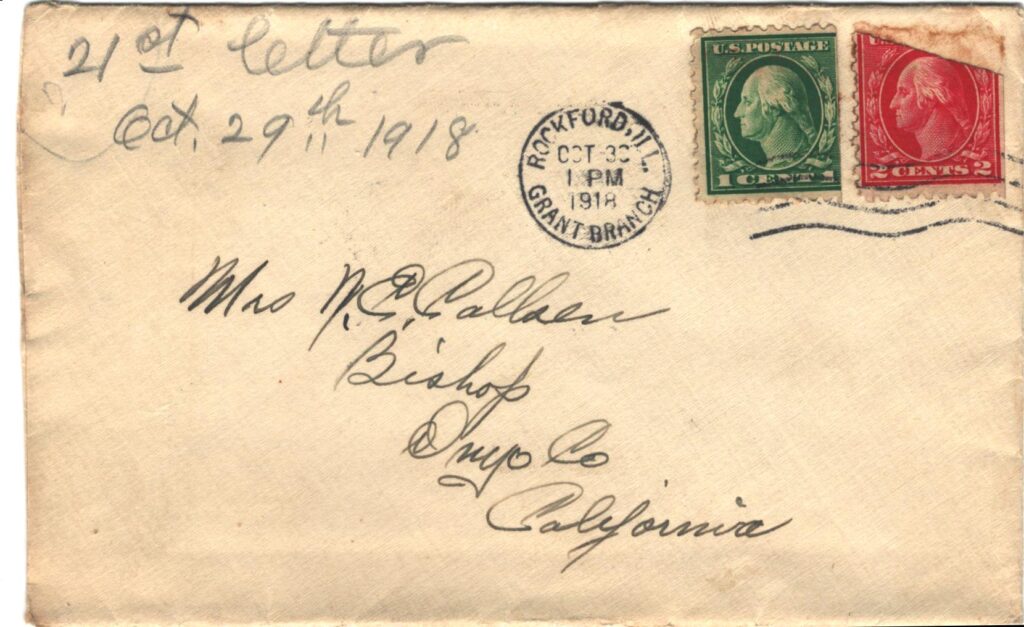 21st letter
Oct. 29th 1918
ROCKFORD, ILL.
OCT 30
1 PM
1918
GRANT BRANCH
U.S. POSTAGE
1 CENT 1
2 CENTS 2
Mrs N. E. Callsen
Bishop
Inyo Co
California